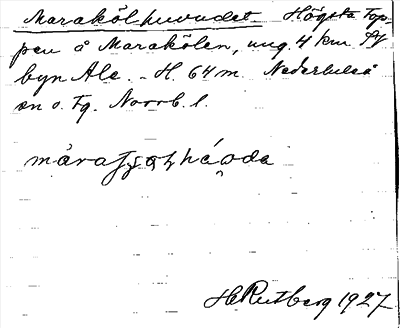 Marakölhuvudet Högsta Top-
pen å Marakölen, ung. 4 km. SV
byn Ale. - H. 64 m. Nederluleå
sn o. Tg. Norrb. l.
HRutberg 1927